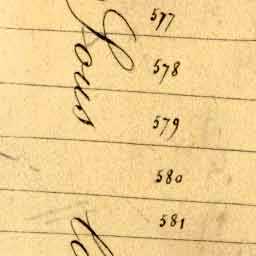 577
578
579
580
581
Sous